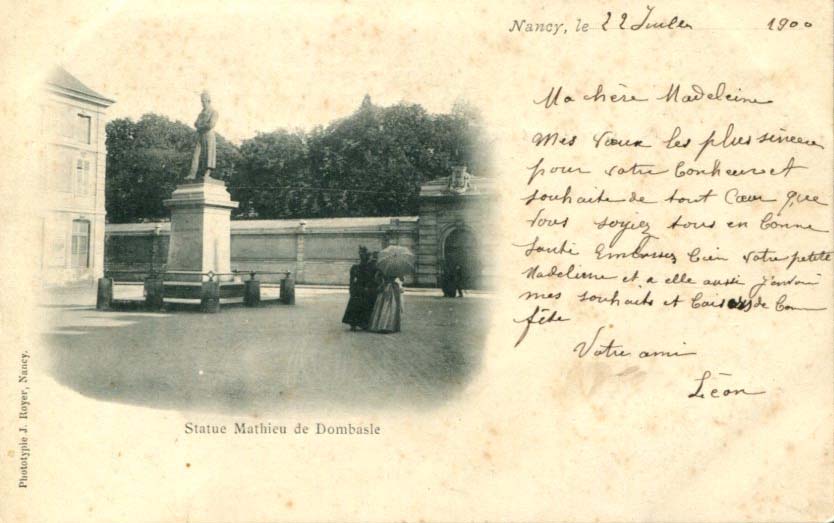 Nancy, le 22 Juillet 1900
Ma chère Madeleine
Mes vœux les plus sincères
pour votre bonheur et
souhaite de tout cœur que
vous soyiez tous en bonne
santé Embrassez bien votre petite
Madeleine et a elle aussi j'envoie
mes souhaits et baisers de bonne
fête
Votre ami
Léon
Statue Mathieu de Dombasle
Phototypie J. Royer, Nancy.